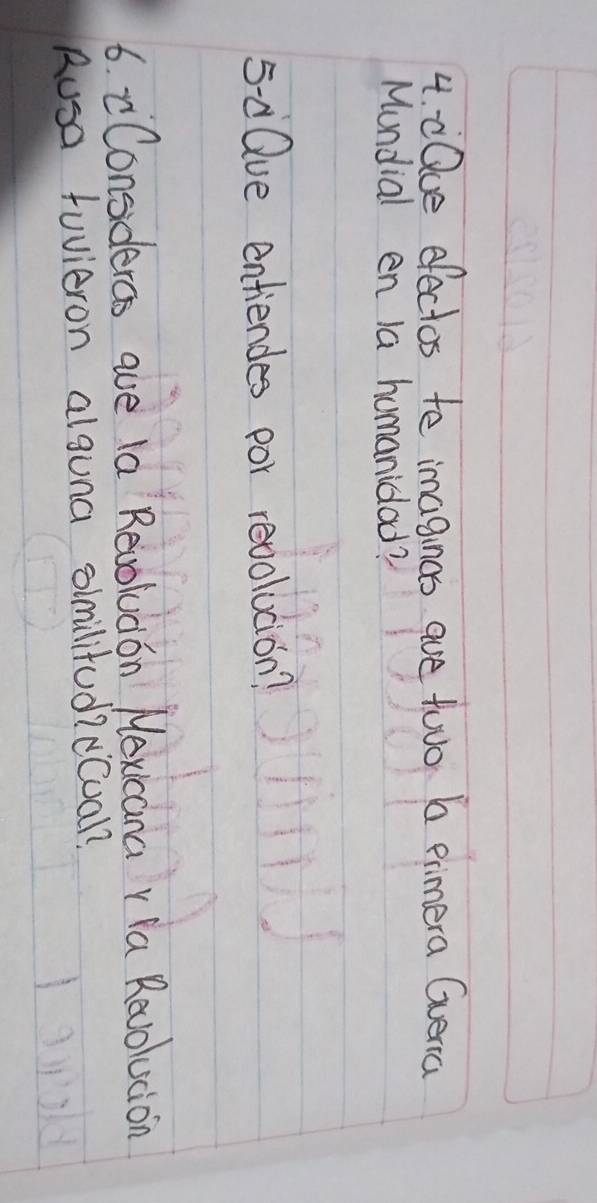 4. ¿Que efectos te imaginas que tuvo la primera Guerra
Mundial en la humanidad?
5-¿Que entiendes por revolución?
6. ¿Consideras que la Revolución Mexicana y la Revolución
Rusa tuvieron alguna similitud? ¿Cual?